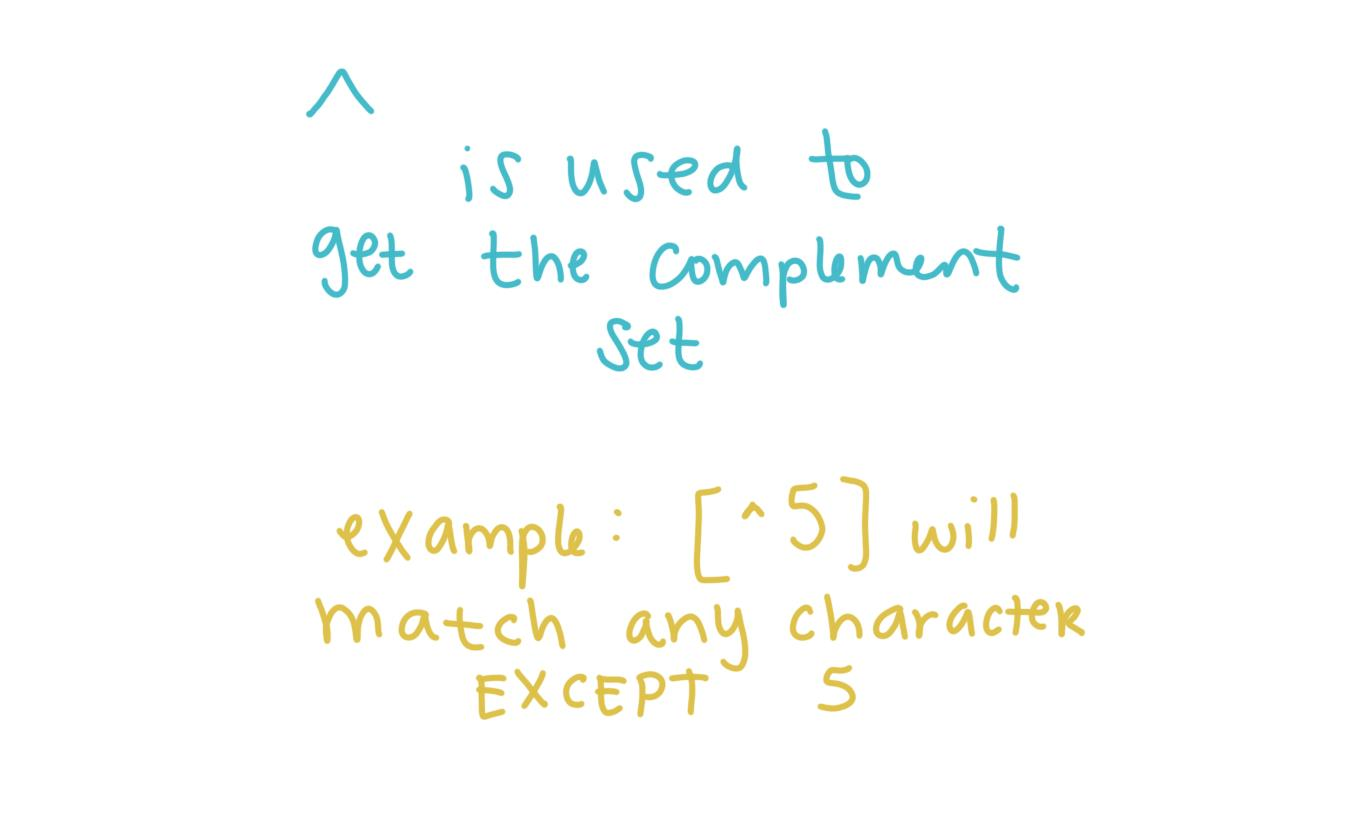 ^
is used to
get the complement
set
example: [^5] will
match any character
EXCEPT 5